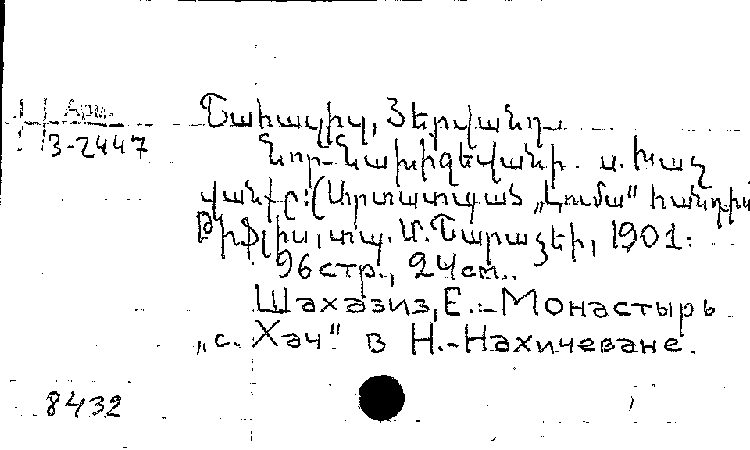 Арм.
3-2447
Շահազիզ, Երվանդ.
Նոր-Նախիջևանի ս. Խաչ
վանքը: (Արտատպված „Լումա“ հանդիս
Թիֆլիս, տպ. Մ. Շարաձեի, 1901:
96 стр., 24 cm.
Шахазиз, Е. - Монастырь
„с. Хач" в Н.-Нахичеване.
8432